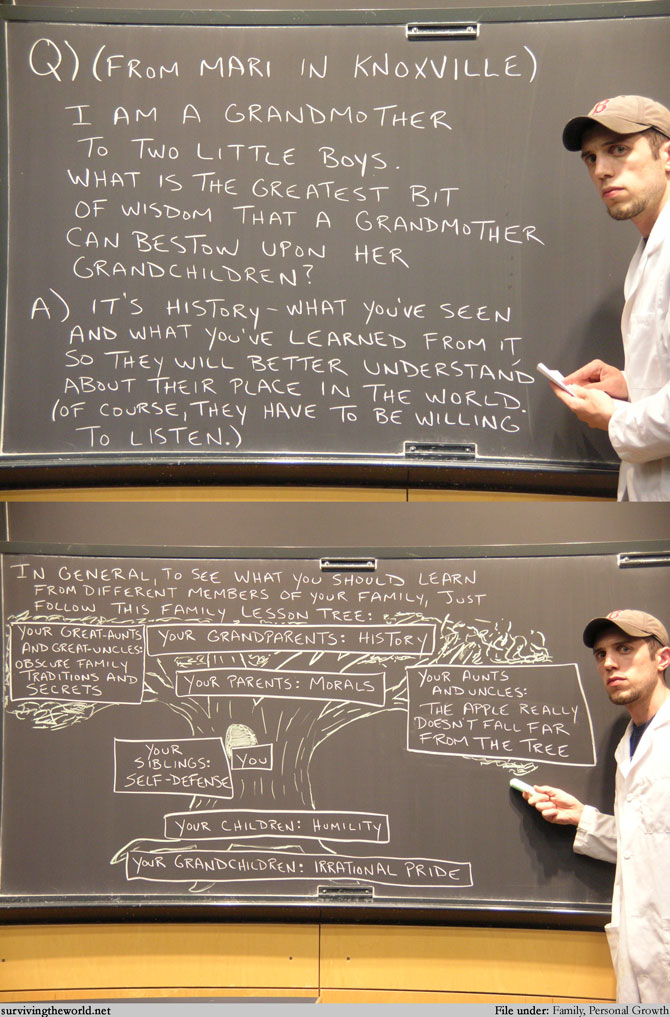 Q) (FROM MARI IN KNOXVILLE)
I AM A GRANDMOTHER
TO TWO LITTLE BOYS.
WHAT IS THE GREATEST BIT
OF WISDOM THAT A GRANDMOTHER
CAN BESTOW UPON HER
GRANDCHILDREN?
A) IT'S HISTORY - WHAT YOU'VE SEEN
AND WHAT YOU'VE LEARNED FROM IT
SO THEY WILL BETTER UNDERSTAND
ABOUT THEIR PLACE IN THE WORLD.
(OF COURSE, THEY HAVE TO BE WILLING
TO LISTEN.)
B
IN GENERAL, TO SEE WHAT YOU SHOULD LEARN
FROM DIFFERENT MEMBERS OF YOUR FAMILY, JUST
FOLLOW THIS FAMILY LESSON TREE:
YOUR GREAT-AUNTS
AND GREAT-UNCLES:
OBSCURE FAMILY
TRADITIONS AND
SECRETS
YOUR GRANDPARENTS: HISTORY
YOUR PARENTS: MORALS
YOUR AUNTS
AND UNCLES:
THE APPLE REALLY
DOESN'T FALL FAR
FROM THE TREE
YOUR
SIBLINGS:
SELF-DEFENSE
YOU
YOUR CHILDREN: HUMILITY
YOUR GRANDCHILDREN: IRRATIONAL PRIDE
survivingtheworld.net
File under: Family, Personal Growth